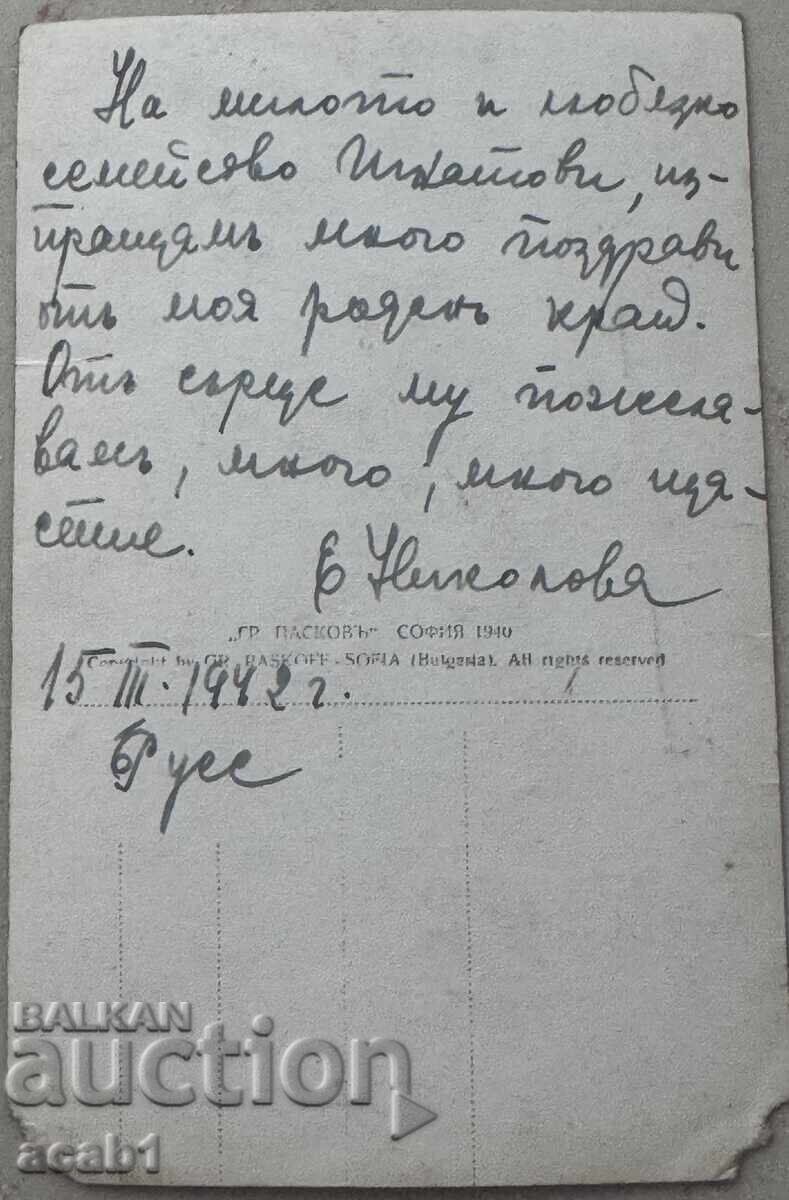 На милото и любязно
семейство Игнатови, из-
пращамъ много поздрави
отъ моя роденъ край.
Отъ сърце му пожеля-
вамъ, много, много щя-
стие.
Е Николова
„ГР. ПАСКОВЪ" СОФИЯ 1940
Copyright by GR. PASKOFF - SOFIA (Bulgaria). All rights reserved
15 III. 1942 г.
Русе
BALKAN
auction
acab1